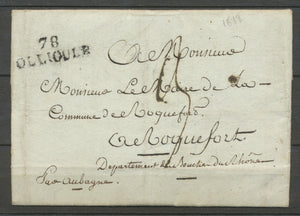 1818
78
OLLIOULE
A Monsieur
Monsieur Le Maire de La
Commune de Roquefort
A Roquefort
Departement des Bouches du Rhône
Par Aubagne